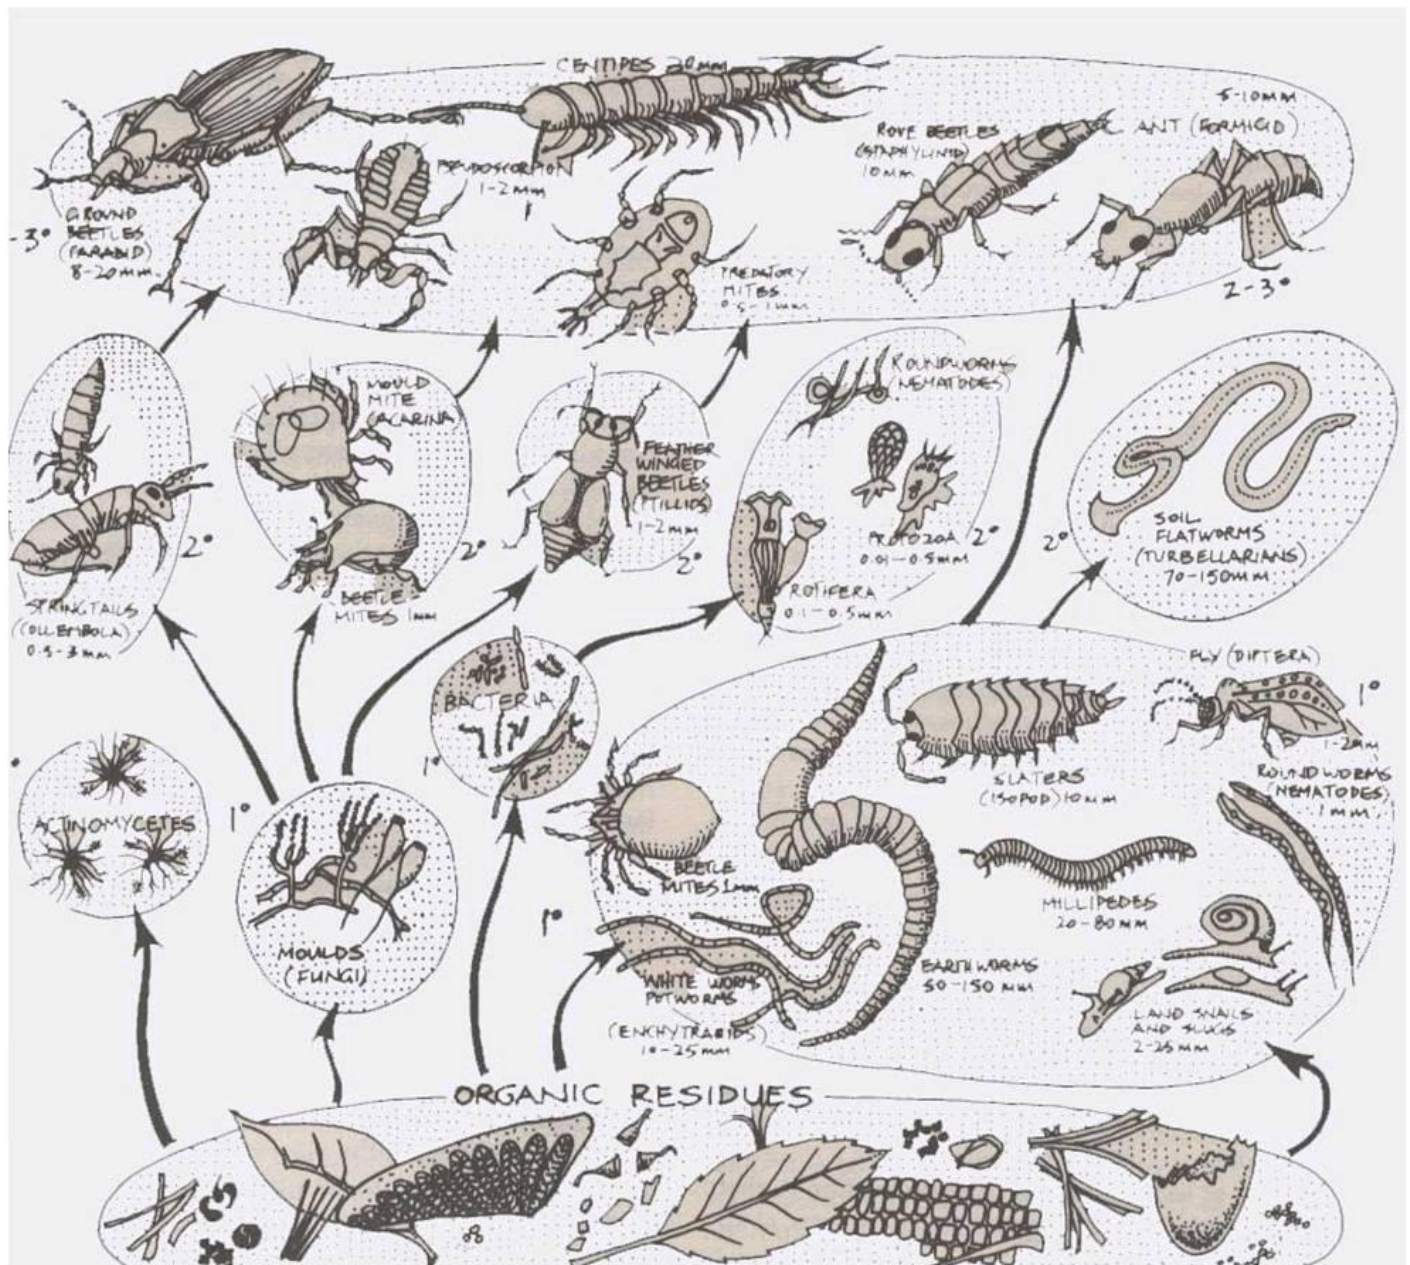 CENTIPES 30mm
5-10mm
ANT (FORMICID)
ROVE BEETLES
(STAPHYLINID)
10mm
PSEUDOSCORPION
1-2mm
GROUND
BEETLES
(PARABID)
8-20mm
-3°
PREDATORY
MITES
0.5-1mm
2-3°
MOULD
MITE
(ACARINA)
ROUNDWORMS
NEMATODES)
FEATHER
WINGED
BEETLES
(PTILLIDS)
1-2mm
2°
2°
2°
PROTOZOA
0.01-0.5mm
2°
2°
SOIL
FLATWORMS
(TURBELLARIANS)
70-150mm
BEETLE
MITES 1mm
ROTIFERA
0.1-0.5mm
SPRINGTAILS
(COLLEMBOLA)
0.5-3mm
FLY (DIPTERA)
1°
1-2mm
BACTERIA
1°
SLATERS
(ISOPOD) 10mm
ROUNDWORMS
(NEMATODES)
1mm
ACTINOMYCETES
1°
BEETLE
MITES 1mm
MILLIPEDES
20-80mm
1°
MOULDS
(FUNGI)
WHITE WORMS
POTWORMS
(ENCHYTRAEIDS)
10-25mm
EARTHWORMS
50-150mm
LAND SNAILS
AND SLUGS
2-25mm
ORGANIC RESIDUES